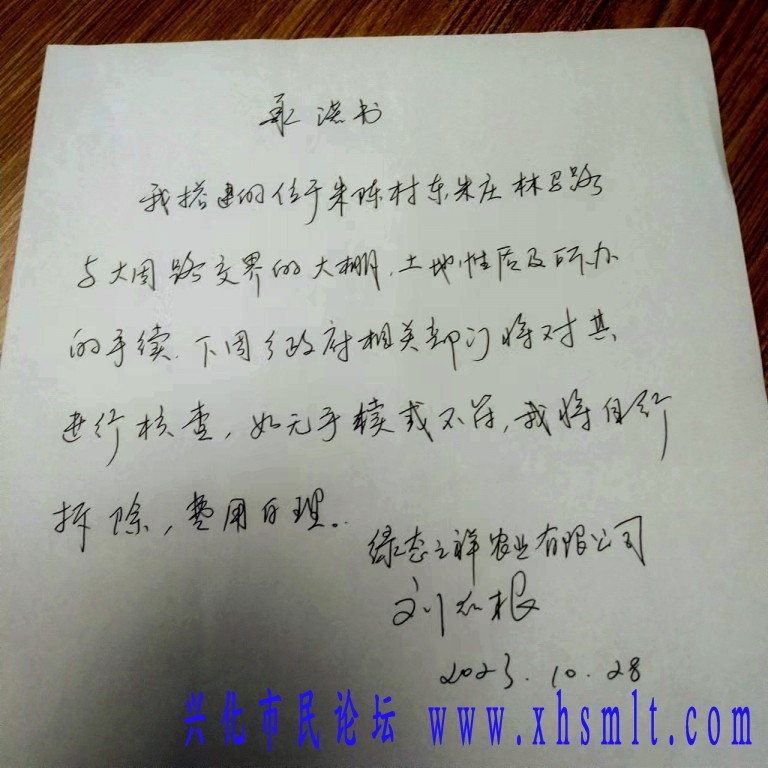 承诺书
我搭建的位于朱陈村东朱庄林马路
与大周路交界的大棚,土地性质及所办
的手续.下周乡政府相关部门将对其
进行核查,如无手续或不符,我将自行
拆除,费用自理.
绿态之祥农业有限公司
刘根
2023.10.28
兴化市民论坛 www.xhsmlt.com